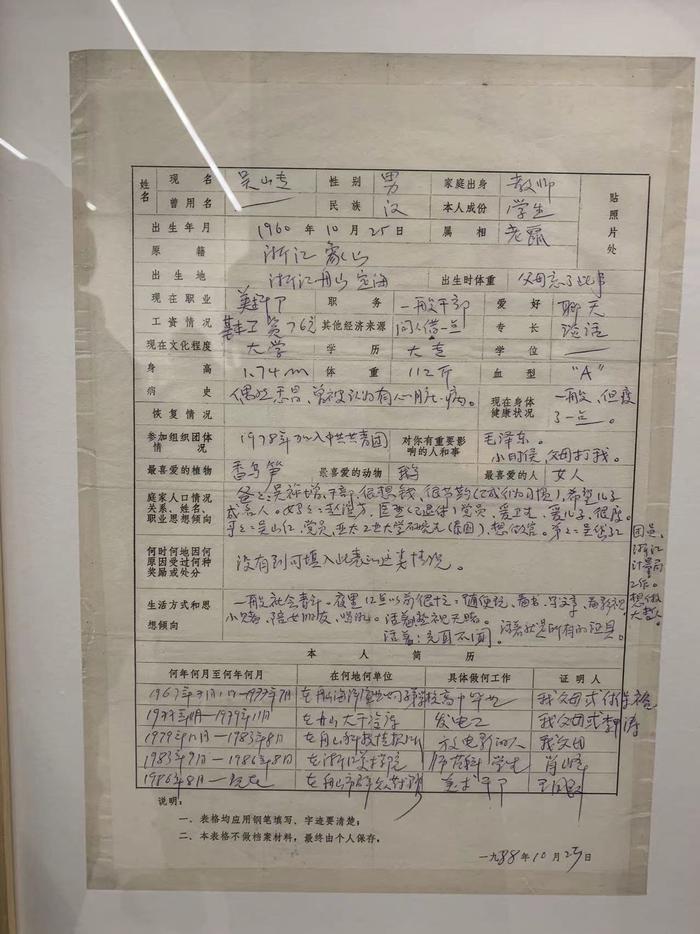 姓名 现名 吴山专 性别 男 家庭出身 教师 贴照片处
曾用名 — 民族 汉 本人成份 学生
出生年月 1960年10月25日 属相 老鼠
原籍 浙江 象山
出生地 浙江 舟山 定海 出生时体重 父母忘了此事
现在职业 美术干 职务 一般干部 爱好 聊天
工资情况 基本工资 76元 其他经济来源 问人借一点 专长 说话
现在文化程度 大学 学历 大专 学位 —
身高 1.74m 体重 112斤 血型 "A"
病史 偶然患昌,曾被认为有心脏病。 现在身体健康状况 一般,但瘦了一点。
恢复情况
参加组织团体情况 1978年加入中共共青团 对你有重要影响的人和事 毛泽东。
小时候,父母打我。
最喜爱的植物 香乌笋 最喜爱的动物 鹅 最喜爱的人 女人
庭家人口情况关系、姓名、职业思想倾向 爸爸:吴祚增,干部,很想钱,很节约(已成化为习惯),希望儿子
成名人。妈妈:赵 医生(已退休)党员,爱卫生,爱儿子,很厚。
哥哥:吴山仁,党员,亚大工业大学研究生 想做官。第二:吴岱江
团员。
浙江
计量局
工作。
想做
大哲人。
何时何地因何原因受过何种奖励或处分 没有到可填入此表的这类情况。
生活方式和思想倾向 一般社会青年。夜里12点以前很十之:随便玩,看书,写文章,看电视
小赌,陪女朋友,喝酒。活着藐视天赐。活着就是所有的证具。
活着:完真不|到。
本人简历
何年何月至何年何月 在何地何单位 具体做何工作 证明人
1967年9月1日—1977年7月 高中毕业 我父母或
1977年 月—1979年11月 在舟山大干 发电工 我父母或
1979年11月—1983年8月 在舟山科技 放电影的人 我父母
1983年9月—1986年8月 在浙江美术学院 师范科学生 肖峰
1986年8月—现在 在舟山市群众艺术馆 美术干
说明:
一、表格均应用钢笔填写、字迹要清楚;
二、本表格不做档案材料,最终由个人保存。
一九88年10月25日